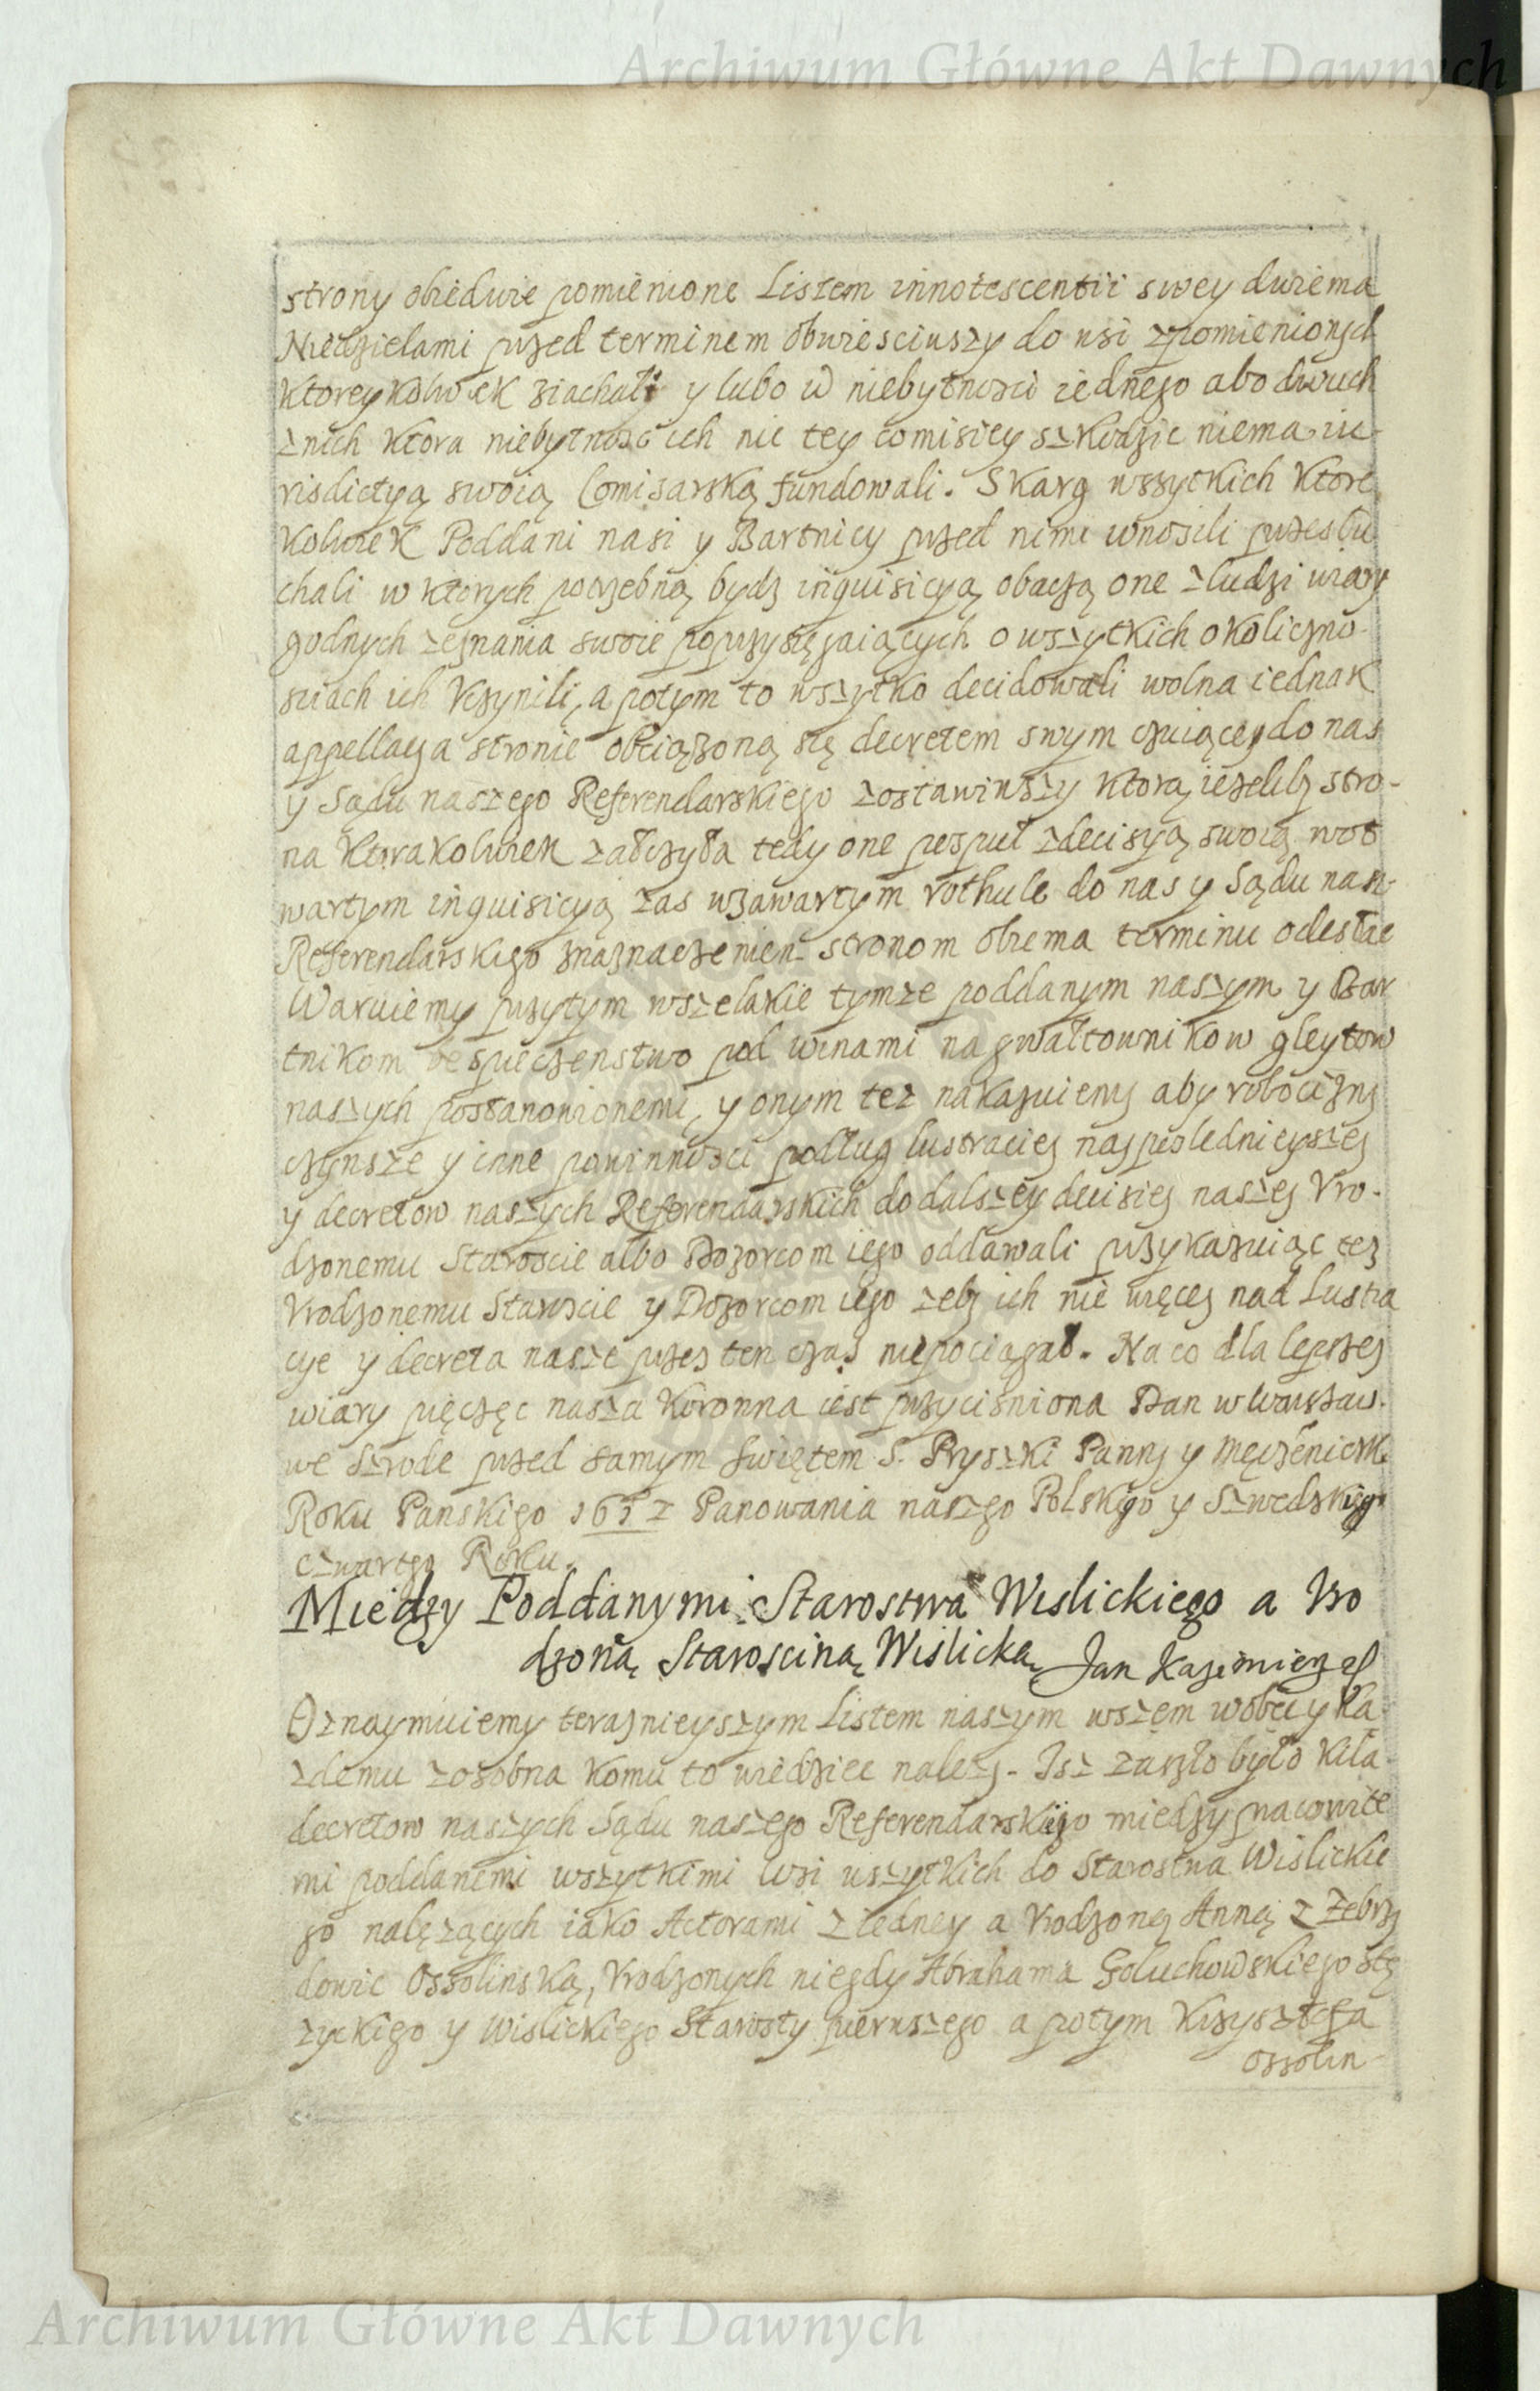 Archiwum Główne Akt Dawnych
strony obiedwie pomienione Listem innotescentii swey dwiema
Niedzielami przed terminem obwiesciwszy do wsi z pomienionych
ktoreykolwiek ziachali y lubo w niebytnosci iednego abo dwuch
z nich ktora niebytnosc ich nic tey comisiey szkodzic niema iu-
risdictyą swoią Comisarską fundowali. Skarg wszytkich ktore
kolwiek Poddani nasi y Bartnicy przed nimi wnosili przesłu
chali w ktorych potrzebną bydz inquisicyą obaczą one z ludzi wiary
godnych zeznania swoie poprzysięgaiących o wszytkich okoliczno-
sciach ich vczynili, a potym to wszytko decidowali wolna iednak
appellacya stronie obciązoną się decretem swym czuiącey do nas
y Sądu naszego Referendarskiego zostawiwszy ktorą iezeliby stro-
na ktorakolwiek założyła tedy one pospuł z decisyą swoią w ot
wartym inquisicyą zas w zawartym rothule do nas y Sądu nasz-
Referendarskiego z naznaczeniem stronom obiema terminu odesłac
Waruiemy przytym wszelakie tymze poddanym naszym y Bar
tnikom bespieczenstwo pod winami na gwałtownikow gleytow
naszych postanowionemi, y onym tez nakazuiemy aby robocizny
czynsze y inne powinnosci podług lustraciey nayposledniejszey
y decretow naszych Referendarskich do dalszey decisiey naszey Vro-
dzonemu Staroscie albo Dozorcom iego oddawali przykazuiąc tez
Vrodzonemu Staroscie y Dozorcom iego zeby ich nie więcey nad Lustra
cye y decreta nasze przez ten czas niepociągał. Na co dla lepszey
wiary pięczęc nasza Koronna iest przyciśniona Dan w Warszaw.
we Szrode przed samym swiętem S. Pryszki Panny y Męczenicзki
Roku Panskiego 1652 Panowania naszego Polskiego y Szwedzkiego
czwartego Roku.
Między Poddanymi Starostwa Wislickiego a Vro
dzoną Starosciną Wislicką Jan Kazimierz
Oznaymuiemy terazniejszym Listem naszym wszem wobec y ka
zdemu zosobna komu to wiedziec nalezy. Isz zaszło było kila
decretow naszych Sądu naszego Referendarskiego między pracowite
mi poddanemi wszytkimi wsi wszytkich do Starostwa Wislickie
go nalęzących iako Actorami z iedney a Vrodzoną Anną z Zebrzy
dowic Ossolinską, Vrodzonych niegdy Abrahama Goluchowskiego Stę
zyckiego y Wislickiego Starosty pierwszego a potym Krzysztofa
Ossolin-
Archiwum Główne Akt Dawnych